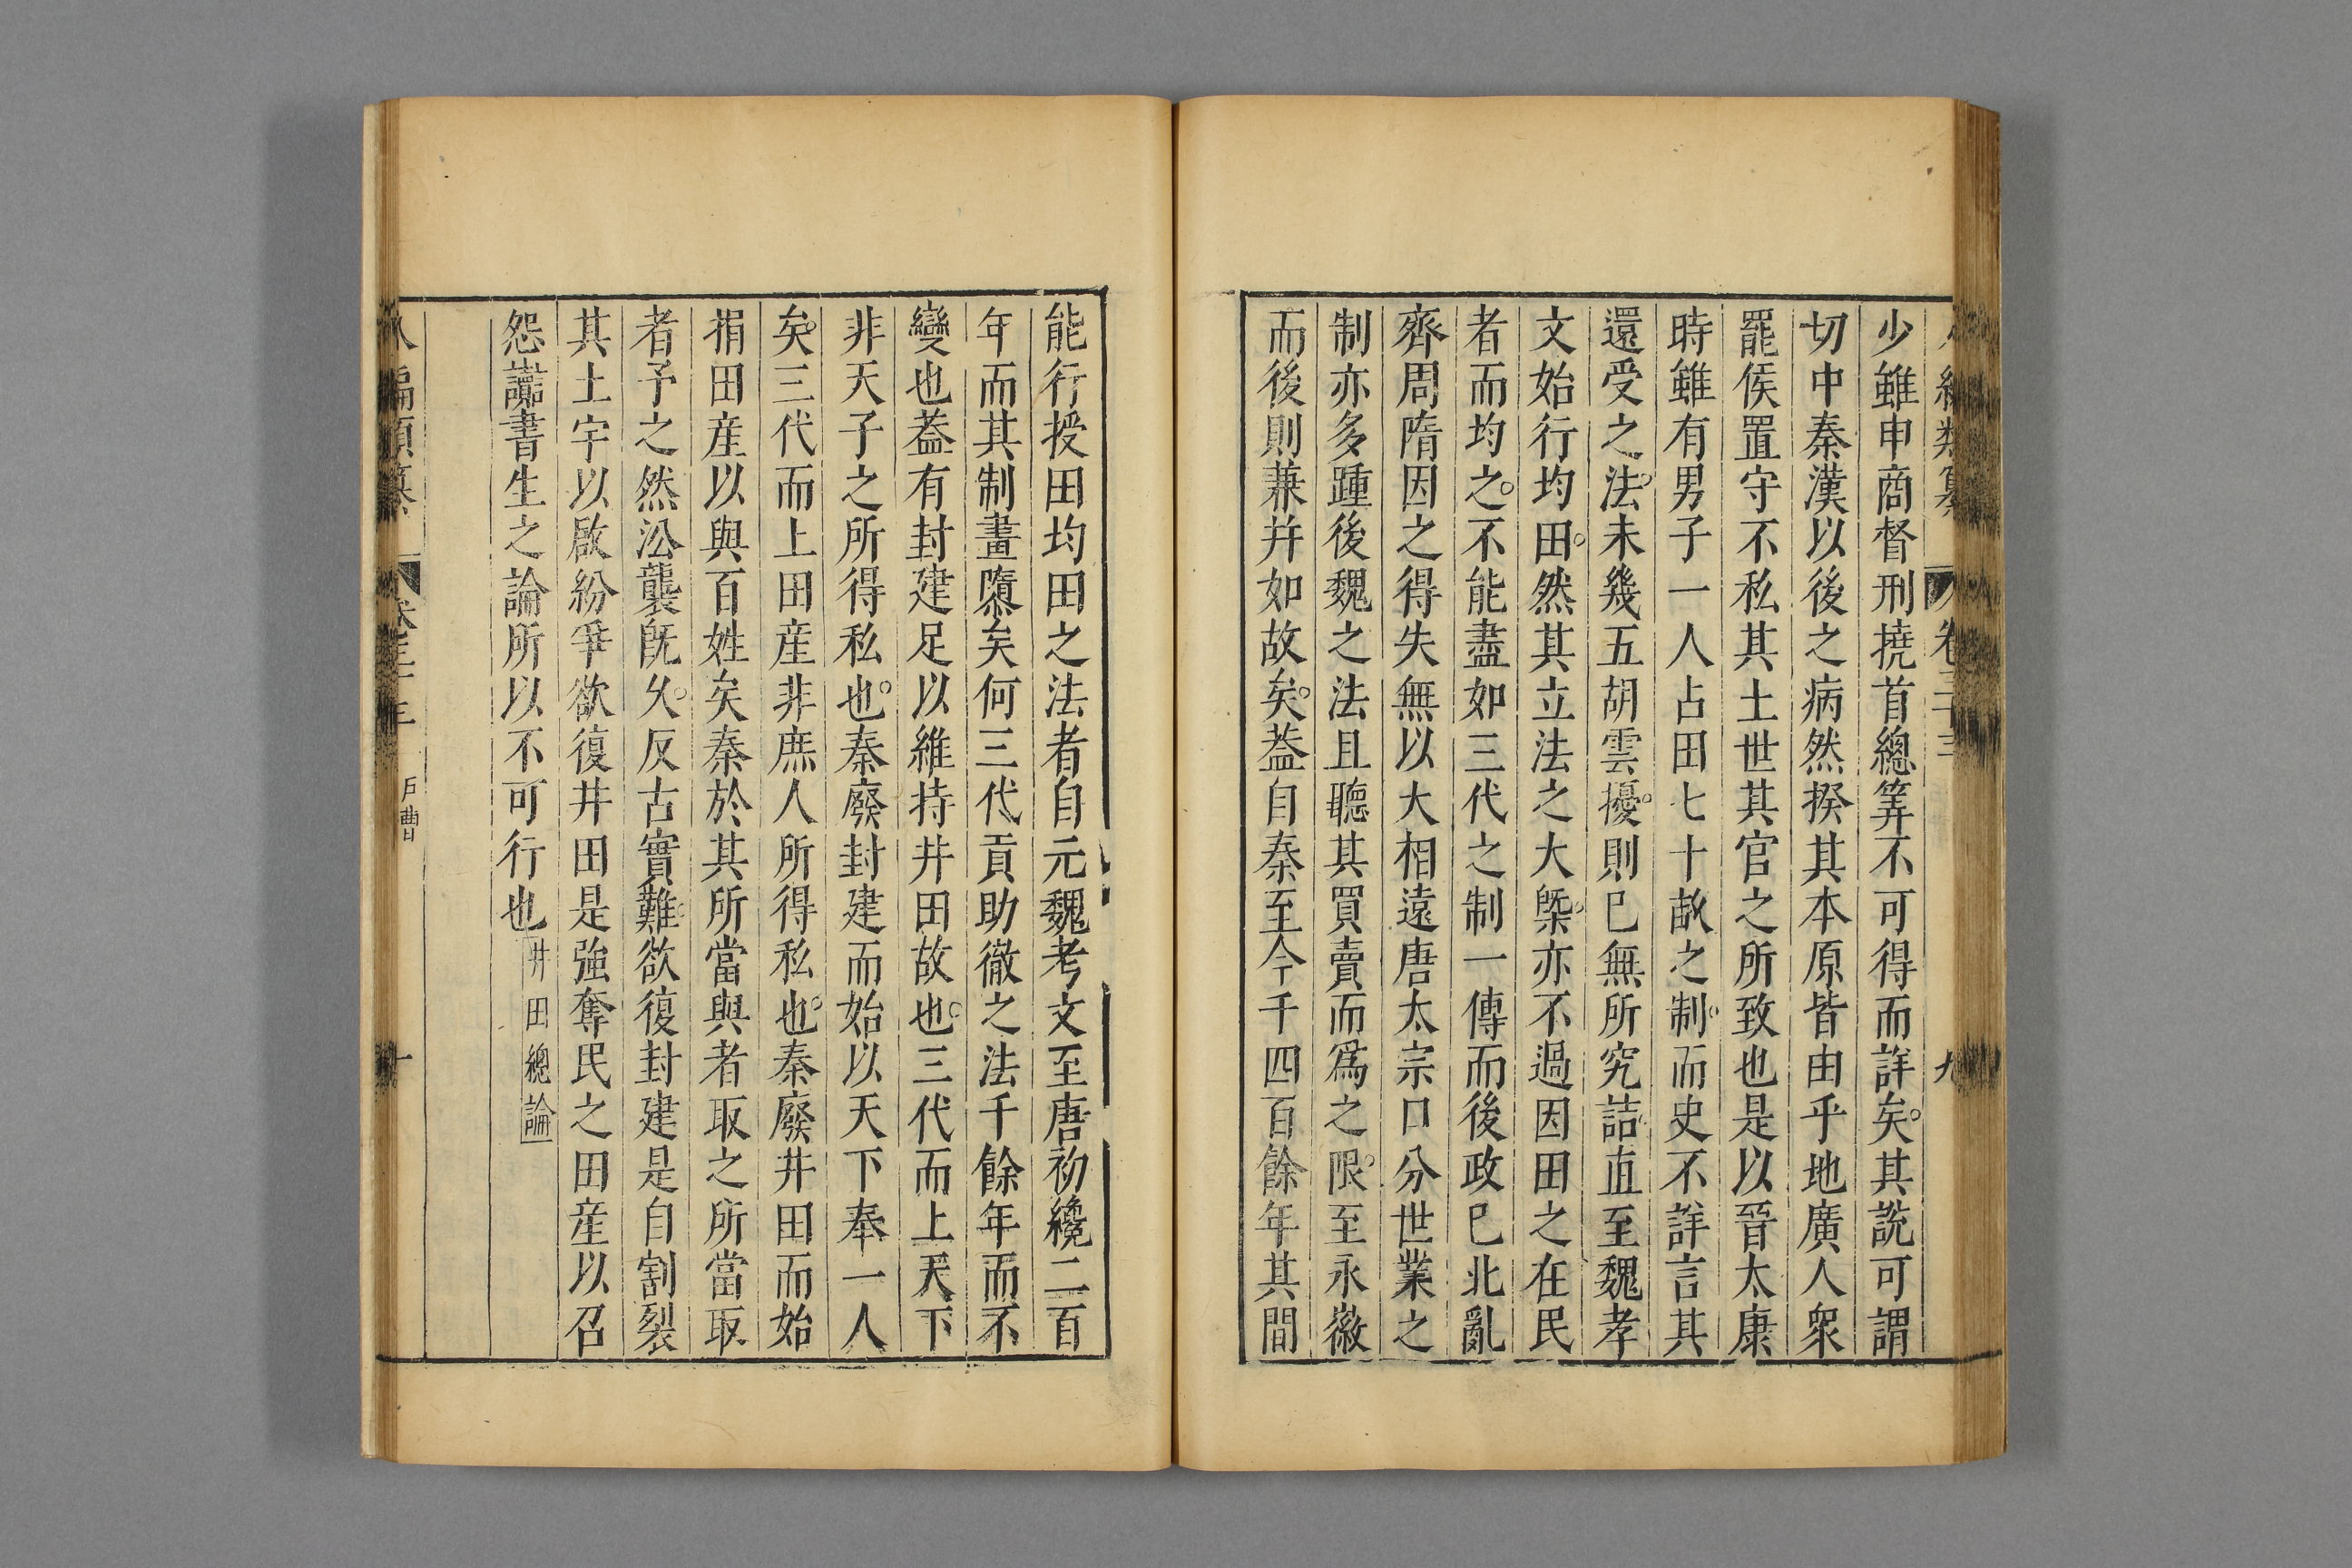 少雖申商督刑撓首總筭不可得而詳矣其說可謂
切中秦漢以後之病然揆其本原皆由乎地廣人衆
罷侯置守不私其土世其官之所致也是以晉太康
時雖有男子一人占田七十畝之制而史不詳言其
還受之法未幾五胡雲擾則已無所究詰直至魏孝
文始行均田然其立法之大槩亦不過因田之在民
者而均之不能盡如三代之制一傳而後政已北亂
齊周隋因之得失無以大相遠唐太宗口分世業之
制亦多踵後魏之法且聽其買賣而爲之限至永徽
而後則兼并如故矣葢自秦至今千四百餘年其間
能行授田均田之法者自元魏孝文至唐初纔二百
年而其制畫隳矣何三代貢助徹之法千餘年而不
變也葢有封建足以維持井田故也三代而上天下
非天子之所得私也秦廢封建而始以天下奉一人
矣三代而上田產非庶人所得私也秦廢井田而始
捐田產以與百姓矣秦於其所當與者取之所當取
者予之然沿襲旣久反古實難欲復封建是自割裂
其土宇以啟紛爭欲復井田是強奪民之田產以召
怨讟書生之論所以不可行也 井田總論
戶曹